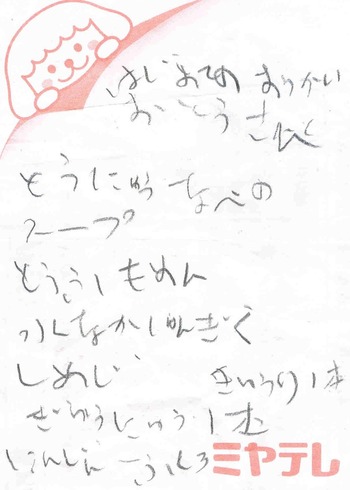 はじめての おつかい
とうにゅう なべの
スープ
とうふ1 もめん
水なかしゅんぎく
しめじ きゅうり1本
ぎゅうにゅう1本
にんじん ふくろ
ミヤテレ